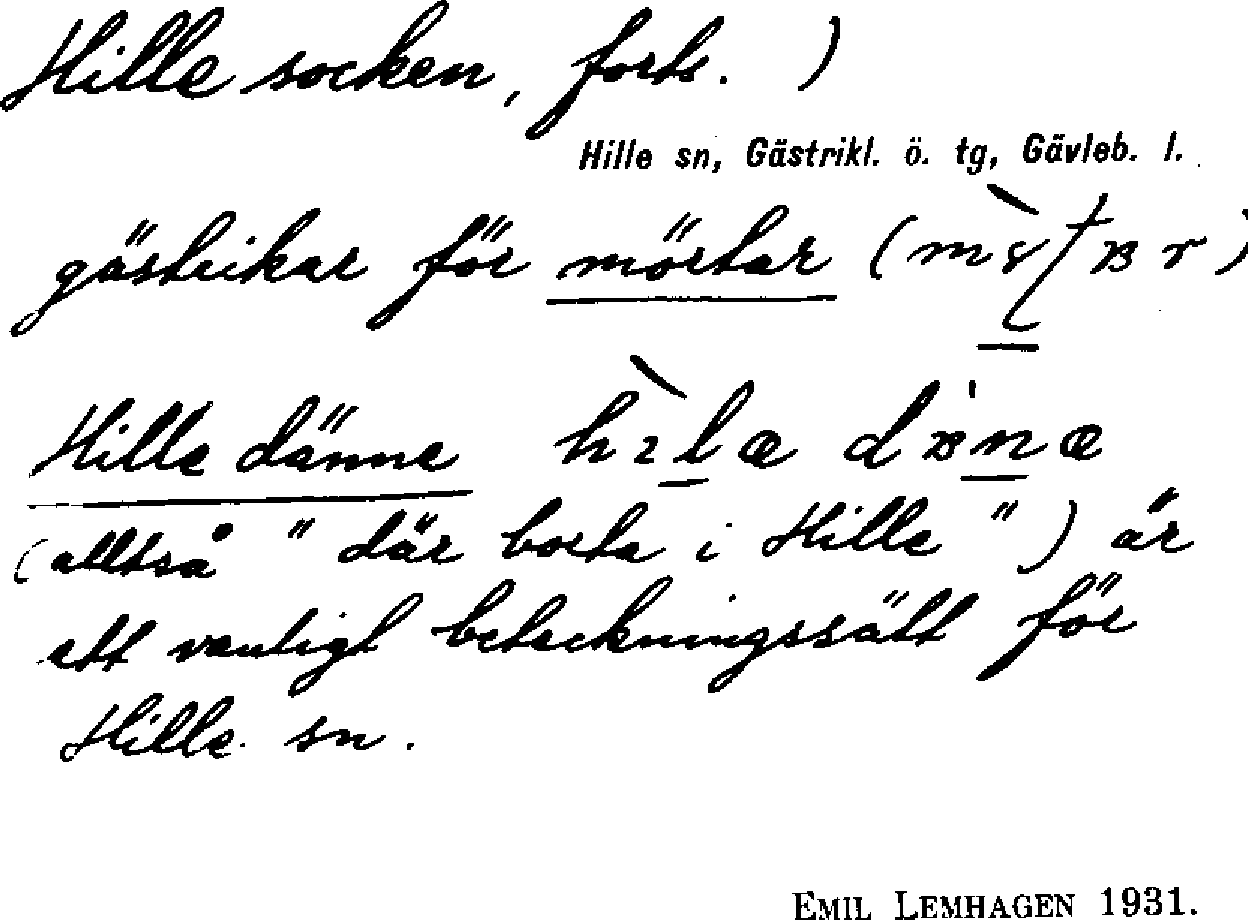 Hille socken, forts. )
Hille sn, Gästrikl. ö. tg, Gävleb. l.
gästrikar för mörtar (
Hille dänne
(alltså "där borta i Hille") är
ett vanligt beteckningssätt för
Hille sn.
EMIL LEMHAGEN 1931.